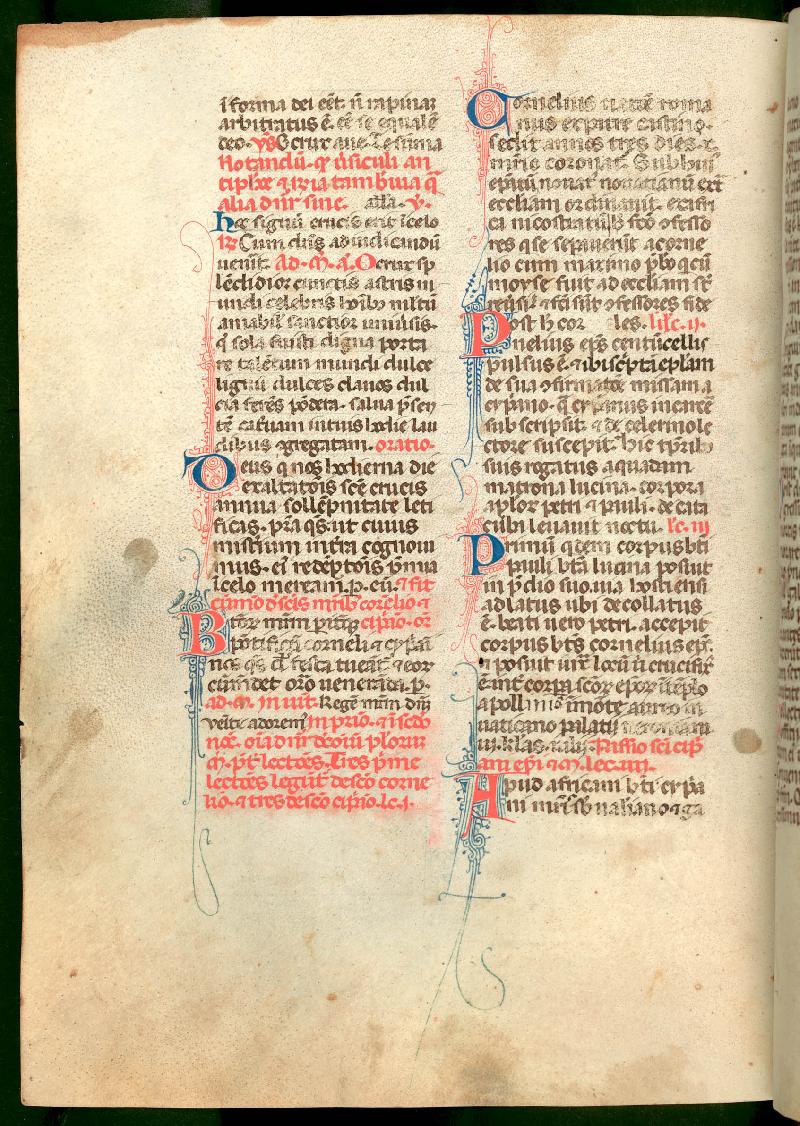 ī forma dei eēt. ñ rapinaȝ
arbitratus ē. eē se equalē
deo. V̄s O crux aue.
Notandū. qɔ ūsiculi an
tiphōe ⁊ īria tam biuia q̄
alia dñr sine. alla. V.
hoc signū crucis erit ī celo
R̄ Cum dñs ad iudicandū
uenit̄. Ad. M. A. O crux sp
lēdidior cunctis astris m
undi celebris hōib3 multū
amabil̓ sanctior uniuĩsis.
q̄ sola fuisti digna porta
re talentum mundi dulce
lignū dulces clauos dul
cia ferēs pōdera. salua p̄sen
tē cat̓uam in tuis hodie lau
dibus ɔgregatam. oratio.
Deus q̓ nos hodierna die
exaltatōis scē crucis
annua sollēpnitate leti
ficas. p̄ta q̄s. ut cuius
misterium in t̓ra cognoui
mus. ei̓ redēptōis p̄mia
ī celo meream̓. p. eū. ⁊ fit
cōm̄o d̓ scīs mr̄ib3 cornelio. ⁊
Btōr̄ mr̄m pit̓q3 cip̄io. or̄
pōtificū corneli ⁊ cyp̄ai
nos q̄s dñe festa tueānt̓ ⁊ eor̄
cōm̄det or̄o uenerāda. p.
ad. M. inuit̓. Regē mr̄m dn̄m
venite adorem̓ in prio. ⁊ ī scdo
noc̄. oīa dñr de cōiū plurimor̄
M̄. p̄t̓ lectōes. Tres p̄me
lectōes legūt̓ de sc̄o corne
lio. ⁊ tres de sc̄o cip̄io. lc̄. i.
Cornelius natōe roma
nus ex patre castino.
sedit annos tres dies. x.
mr̄io coronat̓. Sub hui̓
ep̄atū nouat̓ nouatianū ext̓
eccl̄iam ordinauit. ex afri
ca nicostratū. h̄ fc̄o ɔfesso
res q̓ se sepauerūt a corne
lio cum maximo pb̄o q̓ cū
moyse fuit ad eccl̄iam st̄
reūsi. ⁊ fc̄i sūt ɔfessores fide
Post h̄ cor les. lēc. ii.
nelius ep̄s centūcellis
pulsus ē. ⁊ ibi sc̄ptā ep̄lam
de sua ɔfirmatōe missam a
cyp̄ano. q̄ cyp̄anus in carcē
subscripsit. ⁊ de celerino le
ctore suscepit. hic tp̄rib3
suis rogatus a quadam
matrona lucina. corpora
aplor̄ petri ⁊ pauli. de cata
cūbi leuauit noctu. lc̄. iii
Primū q̓dem corpus bt̄i
pauli bt̄a lucina posuit
in p̄dio suo. uia hostiensi
ad latus ubi decollatus
ē. beati uero petri. accepit
corpus bt̄s cornelius ep̄c.
⁊ posuit iux̄ locū ū crucifix̓
ē. int̓ corpa scōr̄ ep̄or̄ ī tēplo
apollinis ī mōte aureo in
uaticano palatii neroniani
iii. kl̄as. iulii. Passio sc̄i cip̄
ani ep̄i ⁊ m̄. lec. iiii.
Apud africam bt̄i cyp̄a
ni mr̄is. sub ualiano ⁊ ga